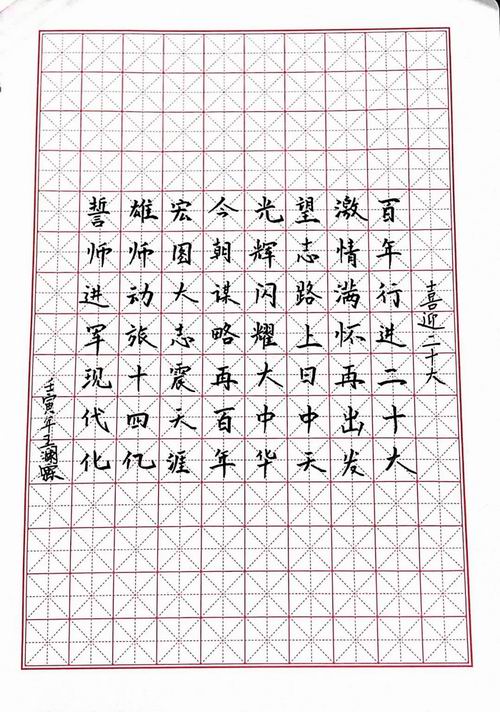 喜迎二十大
百年行进二十大
激情满怀再出发
望志路上日中天
光辉闪耀大中华
今朝谋略再百年
宏图大志震天涯
雄师动旅十四亿
誓师进军现代化
壬寅年王